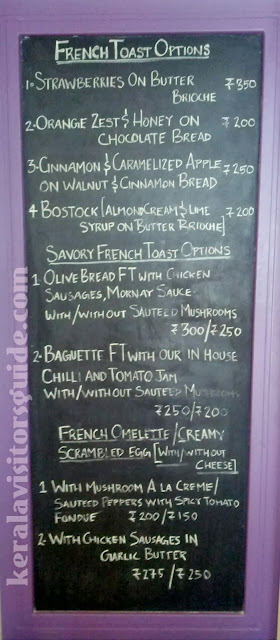 FRENCH TOAST OPTIONS
1-STRAWBERRIES ON BUTTER
BRIOCHE ₹350
2-ORANGE ZEST & HONEY ON
CHOCOLATE BREAD ₹200
3-CINNAMON & CARAMELIZED APPLE
ON WALNUT & CINNAMON BREAD ₹250
4 BOSTOCK [ALMOND CREAM & LIME
SYRUP ON BUTTER BRIOCHE] ₹200
SAVORY FRENCH TOAST OPTIONS
1 OLIVE BREAD FT WITH CHICKEN
SAUSAGES, MORNAY SAUCE
WITH/WITHOUT SAUTEED MUSHROOMS
₹300/₹250
2-BAGUETTE FT WITH OUR IN HOUSE
CHILLI AND TOMATO JAM
WITH/WITHOUT SAUTEED MUSHROOMS
₹250/₹200
FRENCH OMELETTE/CREAMY
SCRAMBLED EGG [WITH/WITHOUT
CHEESE]
1 WITH MUSHROOM A LA CREME/
SAUTEED PEPPERS WITH SPICY TOMATO
FONDUE ₹200/₹150
2-WITH CHICKEN SAUSAGES IN
GARLIC BUTTER
₹275/₹250
keralavisitorsguide.com